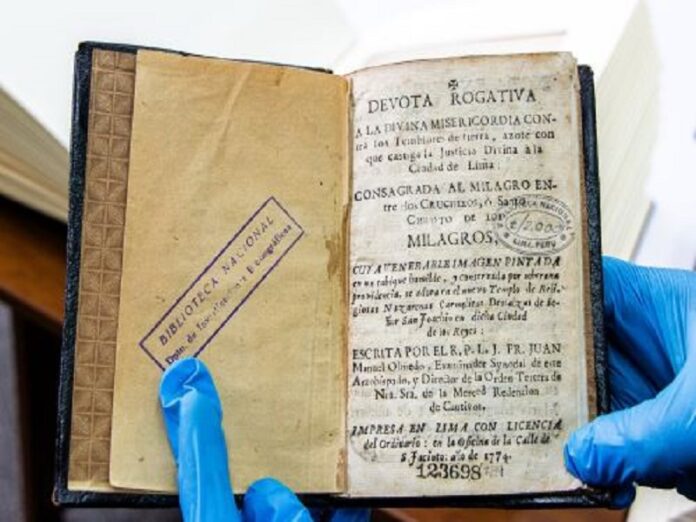 BIBLIOTECA NACIONAL
Dpto. de Investigaciones Bibliográficas
DEVOTA ROGATIVA
A LA DIVINA MISERICORDIA CON-
tra los Temblores de tierra, azote con
que castiga la Justicia Divina à la
Ciudad de Lima:
CONSAGRADA AL MILAGRO EN-
tre los CRUCIFIXOS, ò Santo
CHRISTO DE LOS
MILAGROS,
CUYA VENERABLE IMAGEN PINTADA
en un tabique humilde, y conservada por soberana
providencia, se adora en el nuevo Templo de Reli-
giosas Nazarenas Carmelitas Descalzas de Se-
ñor San Joachin en dicha Ciudad
de los Reyes:
ESCRITA POR EL R. P. L. J. FR. JUAN
Manuel Olmedo, Examinador Synodal de este
Arzobispado, y Director de la Orden Tercera de
Nra. Sra. de la Merced Redencion
de Cautivos.
IMPRESA EN LIMA CON LICENCIA
del Ordinario: en la Oficina de la Calle de
S. Jacinto: año de 1774.
123698
NACIONAL
LIMA, PERU